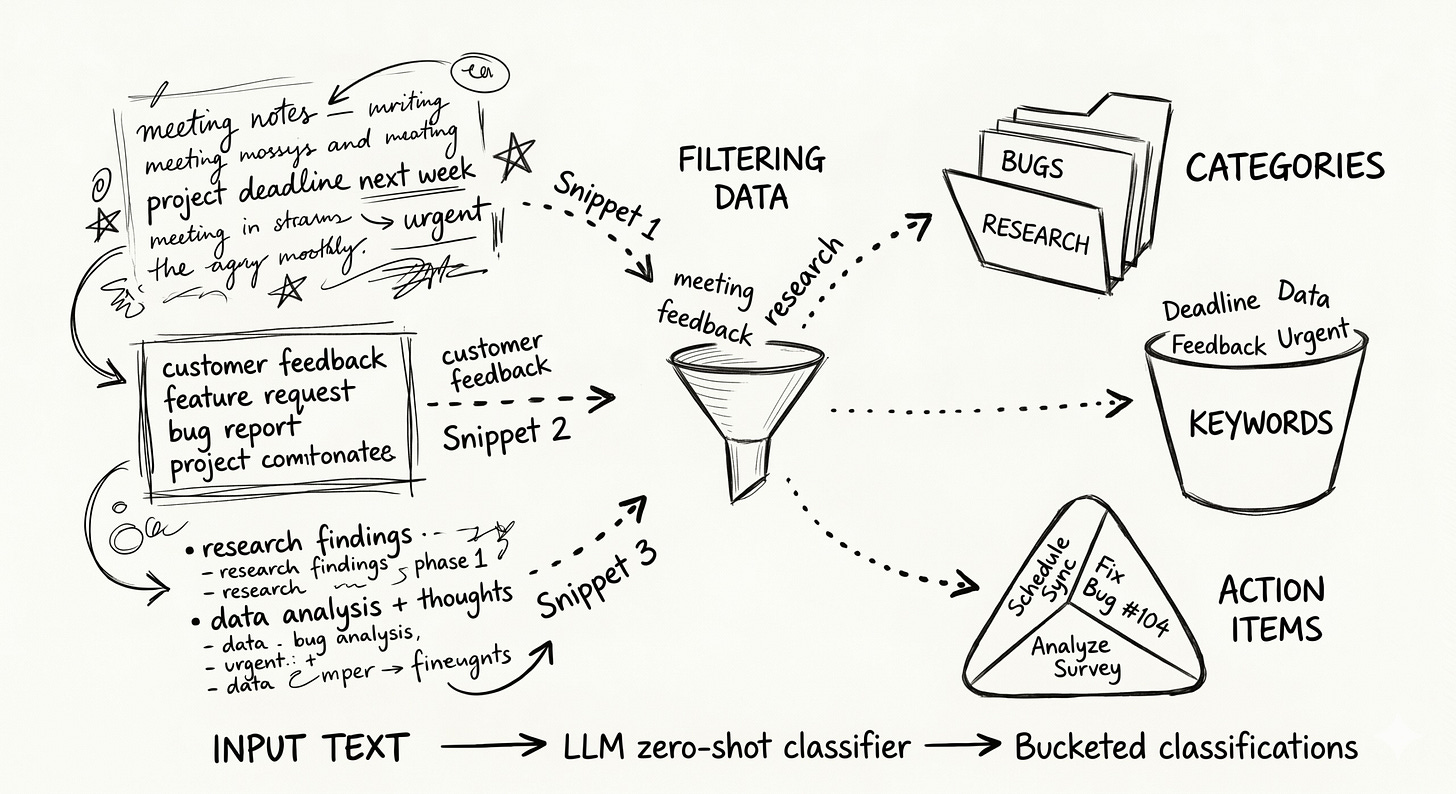 meeting notes — mriting
meeting mossys and meating
project deadline next week
meeting in strams → urgent
the agory moothly.
customer feedback
feature request
bug report
project comitonatee
• research findings
- research findings phase 1
- research
• data analysis + thoughts
- data - bug analysis,
- urgent.: +
- data mper → fineugnts
Snippet 1
customer
feedback
Snippet 2
Snippet 3
FILTERING
DATA
meeting
feedback
research
BUGS
RESEARCH
CATEGORIES
Deadline Data
Feedback Urgent
KEYWORDS
Schedule
Sync
Fix
Bug #104
Analyze
Survey
ACTION
ITEMS
INPUT TEXT → LLM zero-shot classifier → Bucketed classifications